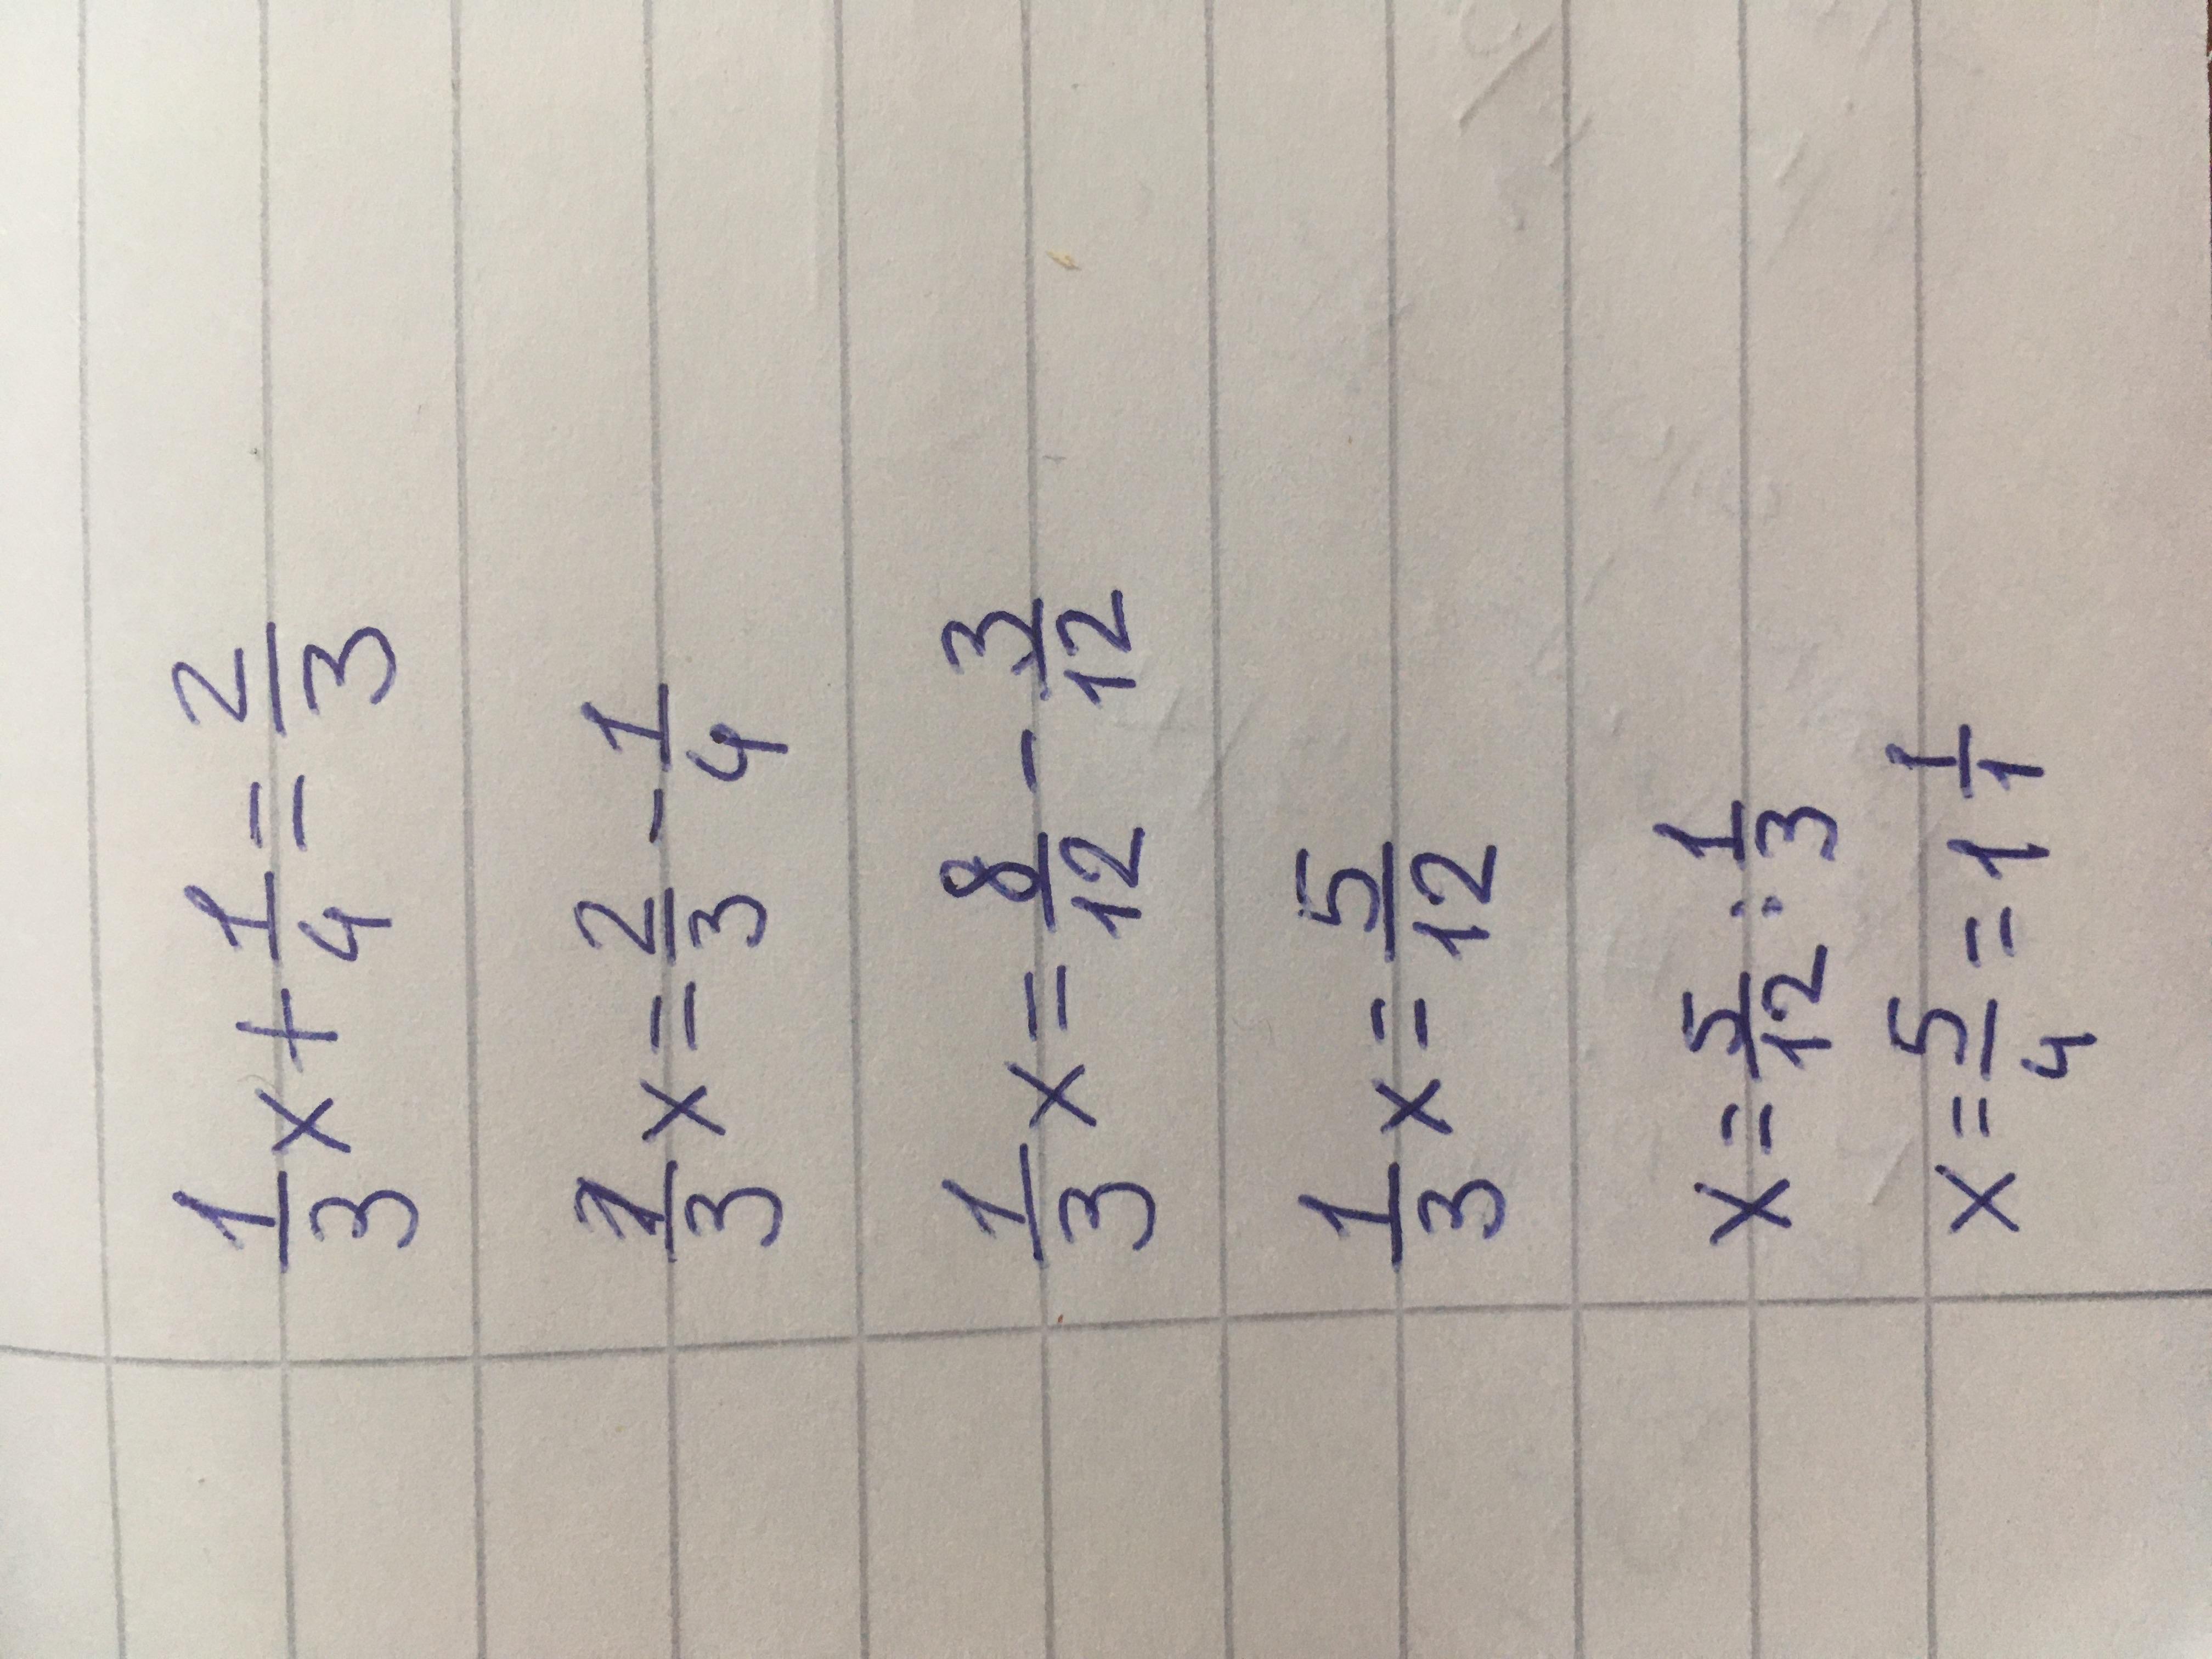 1/3 x + 1/4 = 2/3
1/3 x = 2/3 - 1/4
1/3 x = 8/12 - 3/12
1/3 x = 5/12
x = 5/12 : 1/3
x = 5/4 = 1 1/1